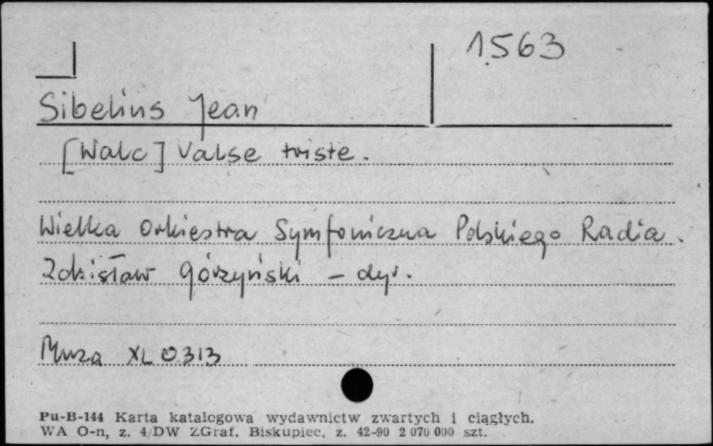 1563
Sibelius Jean
[Walc] Valse triste.
Wielka Orkiestra Symfoniczna Polskiego Radia.
Zdzisław Górzyński – dyr.
Muza XL 0313
Pu-B-144 Karta katalogowa wydawnictw zwartych i ciągłych.
WA O-n, z. 4/DW ZGraf. Biskupiec, z. 42-90 2 070 000 szt.